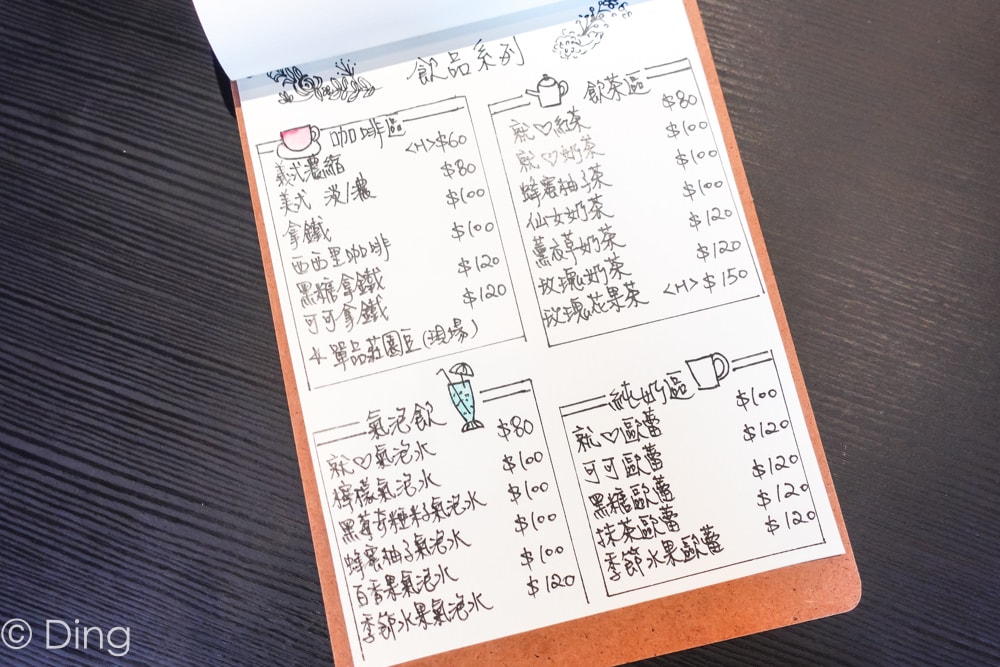 飲品系列
咖啡區
義式濃縮 <H>$60
美式 淡/濃 $80
拿鐵 $100
西西里咖啡 $100
黑糖拿鐵 $120
可可拿鐵 $120
*單品莊園豆(現場)
飲茶區
就♡紅茶 $80
就♡奶茶 $100
蜂蜜柚子茶 $100
仙女奶茶 $100
薰衣草奶茶 $120
玫瑰奶茶 $120
玫瑰花果茶 <H>$150
氣泡飲
就♡氣泡水 $80
檸檬氣泡水 $100
黑莓奇種籽氣泡水 $100
蜂蜜柚子氣泡水 $100
百香果氣泡水 $100
季節水果氣泡水 $120
純奶區
就♡歐蕾 $100
可可歐蕾 $120
黑糖歐蕾 $120
抹茶歐蕾 $120
季節水果歐蕾 $120
© Ding